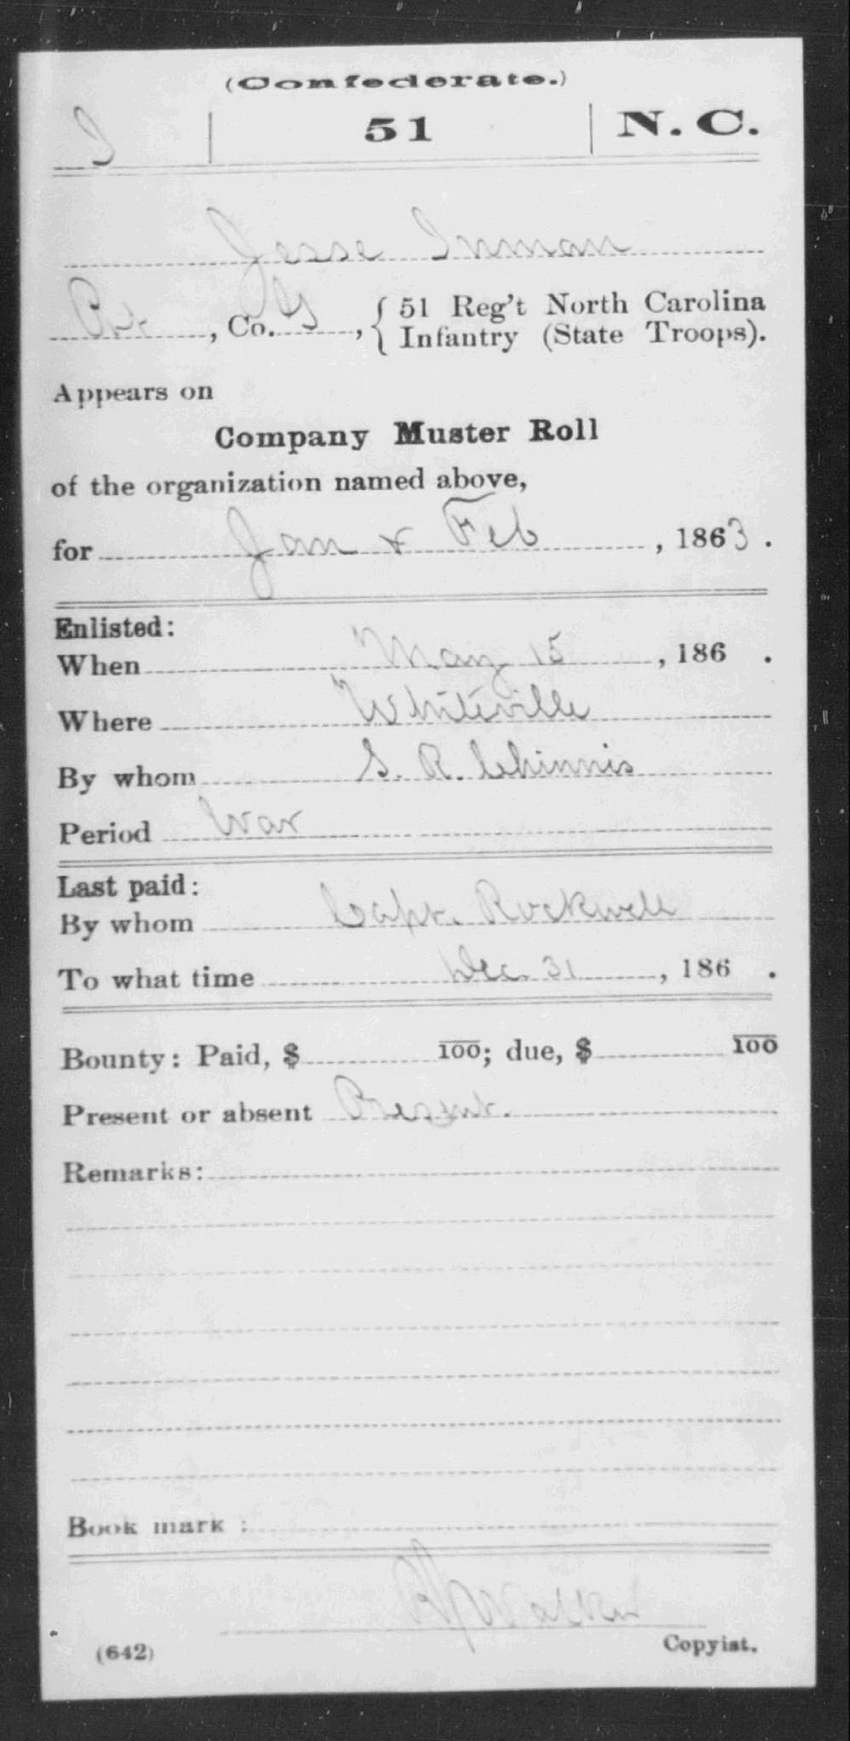 (Confederate.)
I | 51 | N. C.
Jesse Inman
Pvt, Co. G, { 51 Reg't North Carolina
Infantry (State Troops).
Appears on
Company Muster Roll
of the organization named above,
for Jan & Feb, 1863.
Enlisted:
When May 15, 186 .
Where Whiteville
By whom S. R. Chinnis
Period War
Last paid:
By whom Capt. Rockwell
To what time Dec. 31, 186 .
Bounty: Paid, $ 100; due, $ 100
Present or absent Present.
Remarks:
Book mark :
Walker
(642) Copyist.